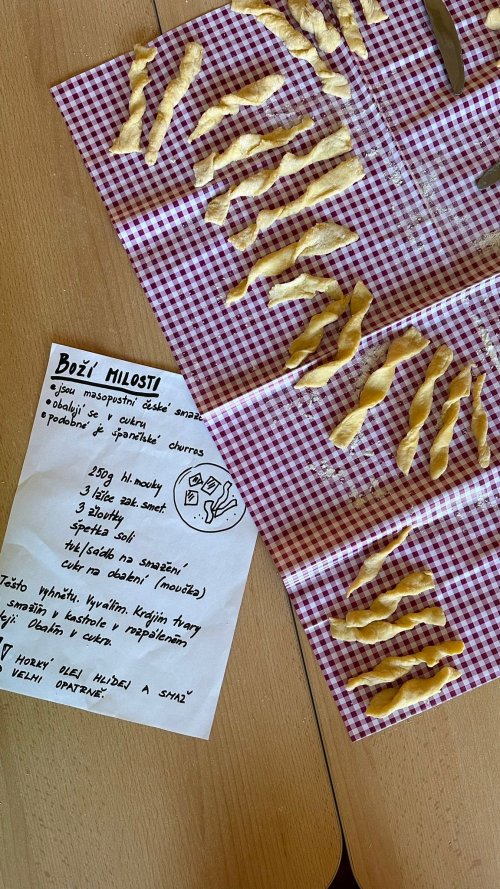 BOŽÍ MILOSTI
• jsou masopustní české smaž
• obalují se v cukru
• podobné je španělské churros
250g hl. mouky
3 lžíce zak. smet.
3 žloutky
špetka soli
tuk/sádlo na smažení
cukr na obalení (moučka)
Těsto vyhněťu. Vyválím. Krájím tvary
smažím v kastrole v rozpáleném
oleji. Obalím v cukru.
! HORKÝ OLEJ HLÍDEJ A SMAŽ
VELMI OPATRNĚ.